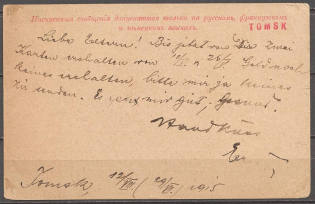 Письменныя сообщенія допускаются только на русскомъ, французскомъ
и нѣмецкомъ языкахъ.
TOMSK
Liebe Eltern! Bis jetzt von Sie zwei
Karten erhalten von 12/ u 26/ Geld noch
keines erhalten, bitte mir ja keines
zu senden. Es geht mir gut, Gesund.
Handküss
Tomsk, 12/VII (29/VI) 1915